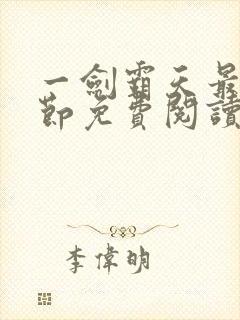 一劍霸天最
節免費閱讀
李偉明